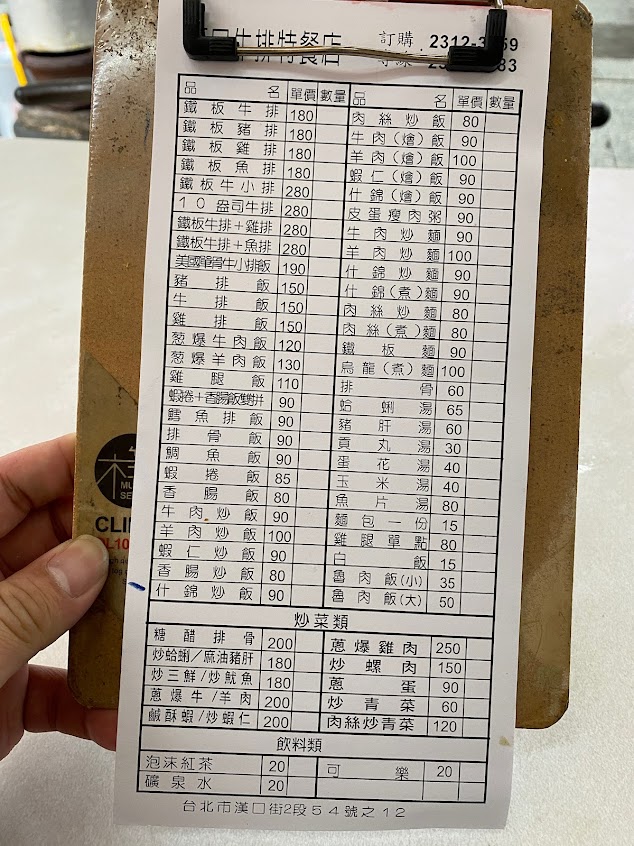 口牛排特餐店 訂購 2312-3 59
83
品名 單價 數量 品名 單價 數量
鐵板牛排 180 肉絲炒飯 80
鐵板豬排 180 牛肉(燴)飯 90
鐵板雞排 180 羊肉(燴)飯 100
鐵板魚排 180 蝦仁(燴)飯 90
鐵板牛小排 280 什錦(燴)飯 90
10盎司牛排 280 皮蛋瘦肉粥 90
鐵板牛排+雞排 280 牛肉炒麵 90
鐵板牛排+魚排 280 羊肉炒麵 100
美國單骨牛小排飯 190 什錦炒麵 90
豬排飯 150 什錦(煮)麵 90
牛排飯 150 肉絲炒麵 80
雞排飯 150 肉絲(煮)麵 80
葱爆牛肉飯 120 鐵板麵 90
葱爆羊肉飯 130 烏龍(煮)麵 100
雞腿飯 110 排骨 60
蝦捲+香腸飯雙拼 90 蛤蜊湯 65
鱈魚排飯 90 豬肝湯 60
排骨飯 90 貢丸湯 30
鯛魚飯 90 蛋花湯 40
蝦捲飯 85 玉米湯 40
香腸飯 80 魚片湯 80
牛肉炒飯 90 麵包一份 15
羊肉炒飯 100 雞腿單點 80
蝦仁炒飯 90 白飯 15
香腸炒飯 80 魯肉飯(小) 35
什錦炒飯 90 魯肉飯(大) 50
炒菜類
糖醋排骨 200 蔥爆雞肉 250
炒蛤蜊/麻油豬肝 180 炒螺肉 150
炒三鮮/炒魷魚 180 蔥蛋 90
蔥爆牛/羊肉 200 炒青菜 60
鹹酥蝦/炒蝦仁 200 肉絲炒青菜 120
飲料類
泡沫紅茶 20 可樂 20
礦泉水 20
台北市漢口街2段54號之12